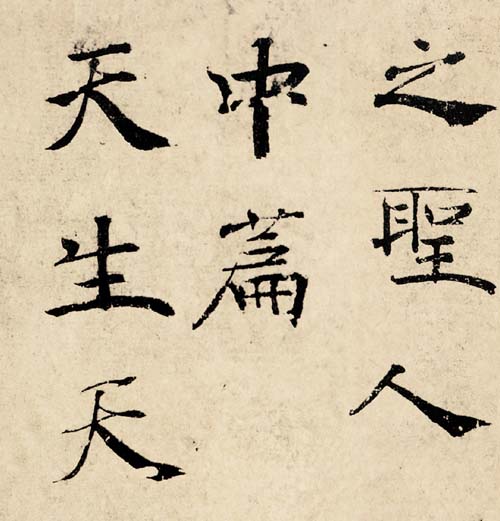 之聖人
中篇
天生天